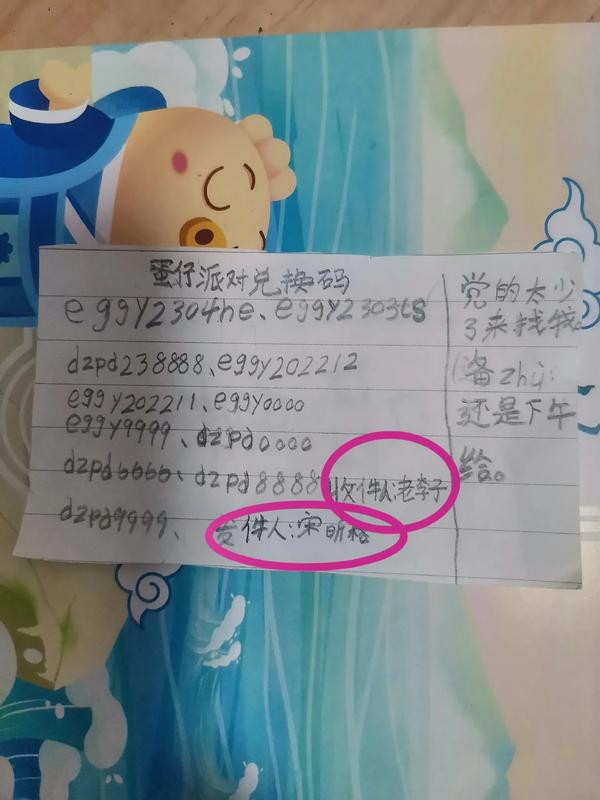 蛋仔派对兑换码
eggy2304he、eggy2303ts
dzpd238888、eggy202212
eggy202211、eggy0000
eggy9999、dzpd0000
dzpd6666、dzpd8888 收件人:老李子
dzpd9999、 发件人:宋昕
党的太少
了来找我
(备zhù:
还是下午
给。